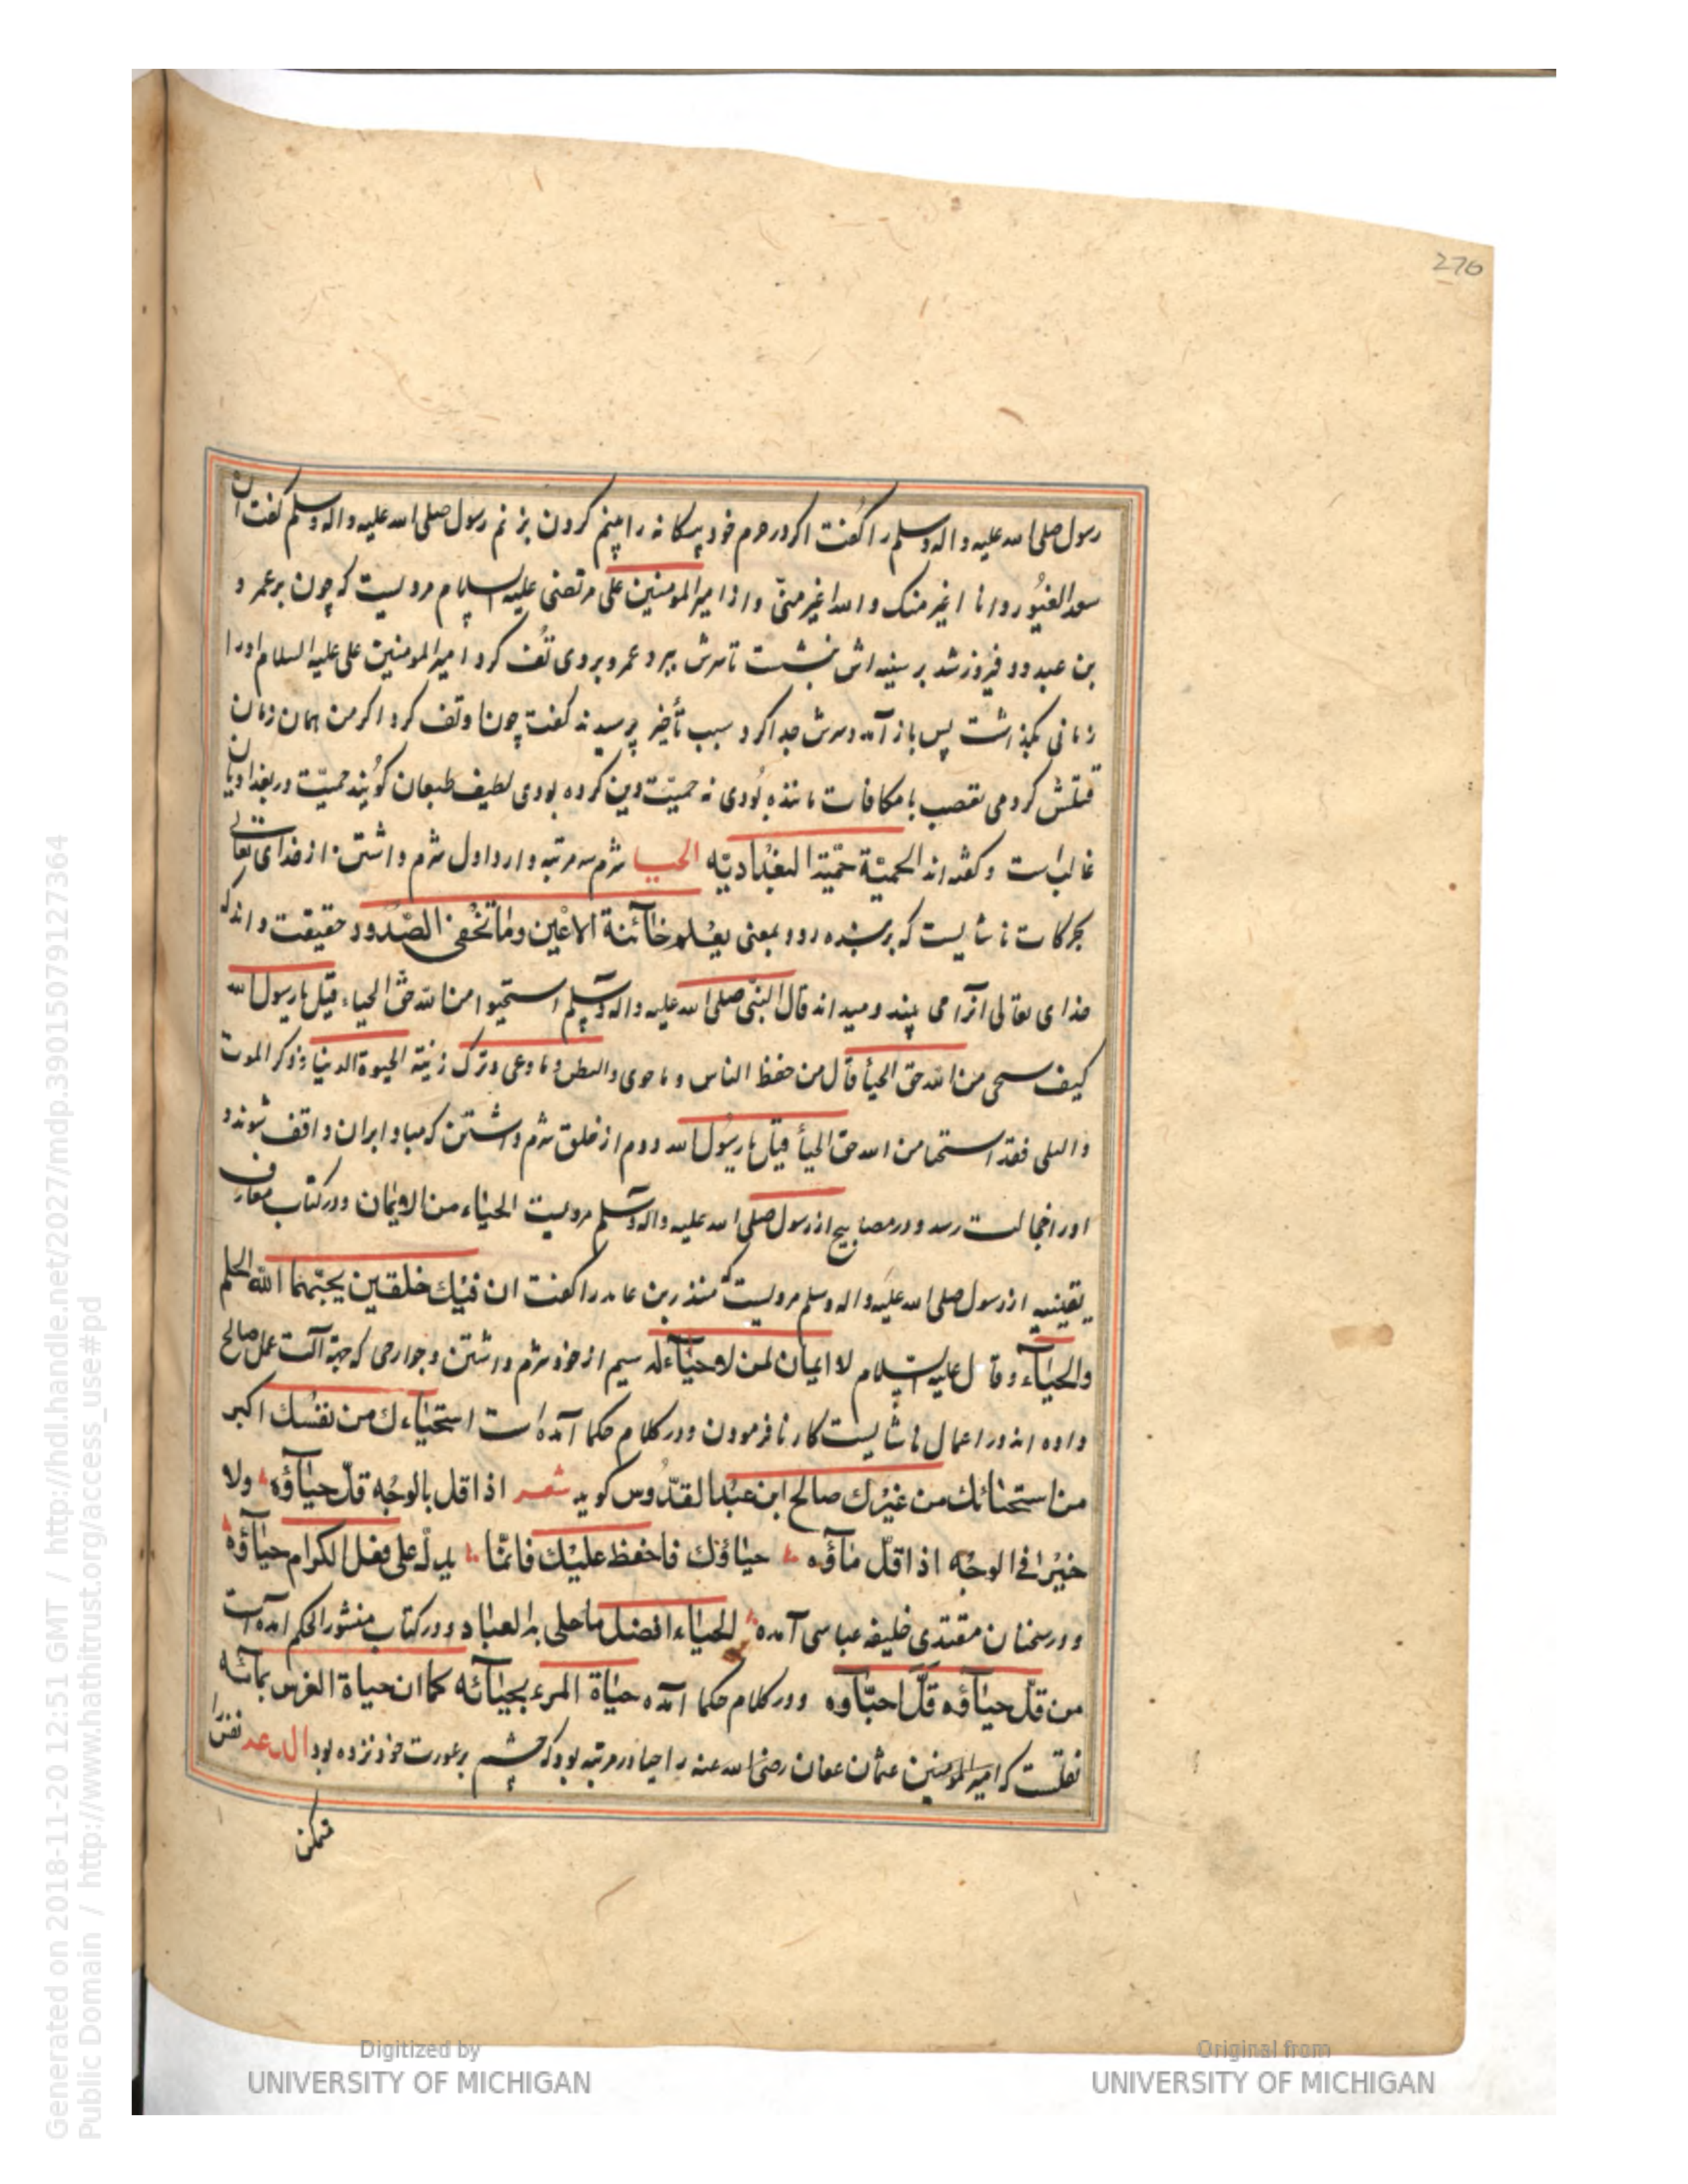 276
رسول صلی الله علیه و اله وسلم را گفت اکر در حرم خود بیکانه را بینم کردن بزنم رسول صلی الله علیه و اله وسلم گفت ان
سعد الغیور و انا اغیر منک و الله اغیر منّی و از امیر المومنین علی مرتضی علیه السلام مرویست که چون بر عمر و
بن عبدود فیروز شد بر سینه اش نشست تا سرش ببرد عمرو بر وی تُف کرد امیر المومنین علی علیه السلام او را
زمانی بگذاشت پس باز آمد و سرش جدا کرد سبب تأخیر پرسیدند گفت چون او تف کرد اکر من همان زمان
قتلش کردمی تعصب با مکافات ماننده بُودی نه حمیّت دین کرده بودی لطیف طبعان کویند حمیّت در بغدادیان
غالب است و کفته اند الحمیّة حمّیة البغدادیّه الحیا شرم سه مرتبه دارد اول شرم داشتن از خدای تعالی
بحرکات ناشایست که بر بنده رود بمعنی یعلم خآئنة الاعین وما تخفی الصّدور حقیقت داند که
خدای تعالی انرا می بیند و میداند قال النبّی صلی الله علیه واله وسلم استحیوا من الله حقّ الحیاء قیل یا رسول الله
کیف سحی من الله حق الحیأ قال من حفظ الناس و ما حوی والبطن و ما وعی و ترک زینة الحیوة الدنیا و ذکر الموت
والبلی فقد استحیا من الله حق الحیأ قیل یا رسُول الله دوم از خلق شرم داشتن که مبادا بران واقف شوند و
او را خجالت رسد و در مصابیح از رسول صلی الله علیه واله وسلم مرویست الحیاء من الایمان و در کتاب معارف
یقینیه از رسول صلی الله علیه و اله وسلم مرویست که منذر بن عامر را کفت ان فیك خلقین یحبّهما الله الحلم
والحیآء و قال علیه السّلام لا ایمان لمن لا حیآء له سیم از خود شرم داشتن و جوارحی که جهة آلت عمل صالح
داده اند در اعمال ناشایست کار نافرمودن و در کلام حکما آمده است استحیاءك من نفسك اکبر
من استحنائك من غیرك صالح ابن عبد القدّوس کوید شعر اذا قل بالوجُه قلّ حیآؤه ولا
خیرا فی الوجه اذا قلّ مآؤه حیاؤك فاحفظ علیك فانمّا یدلّ علی فعل الکرام حیآؤه
و در سخنان مقتدی خلیفه عباسی آمده الحیاء افضل ما حلی به العباد و در کتاب منثور الحکم امده است
من قلّ حیآؤه قلّ احبّآوه و در کلام حکما آمده حیاة المرء بحیآئه کما ان حیاة الغرس بمآئه
نقلست که امیر المومنین عثمان عفان رضی الله عنه را حیا در مرتبه بود که چشم بر عورت خود نزده بود
تمکن
Generated on 2018-11-20 12:51 GMT / http://hdl.handle.net/2027/mdp.39015079127364
Public Domain / http://www.hathitrust.org/access_use#pd
Digitized by
UNIVERSITY OF MICHIGAN
Original from
UNIVERSITY OF MICHIGAN